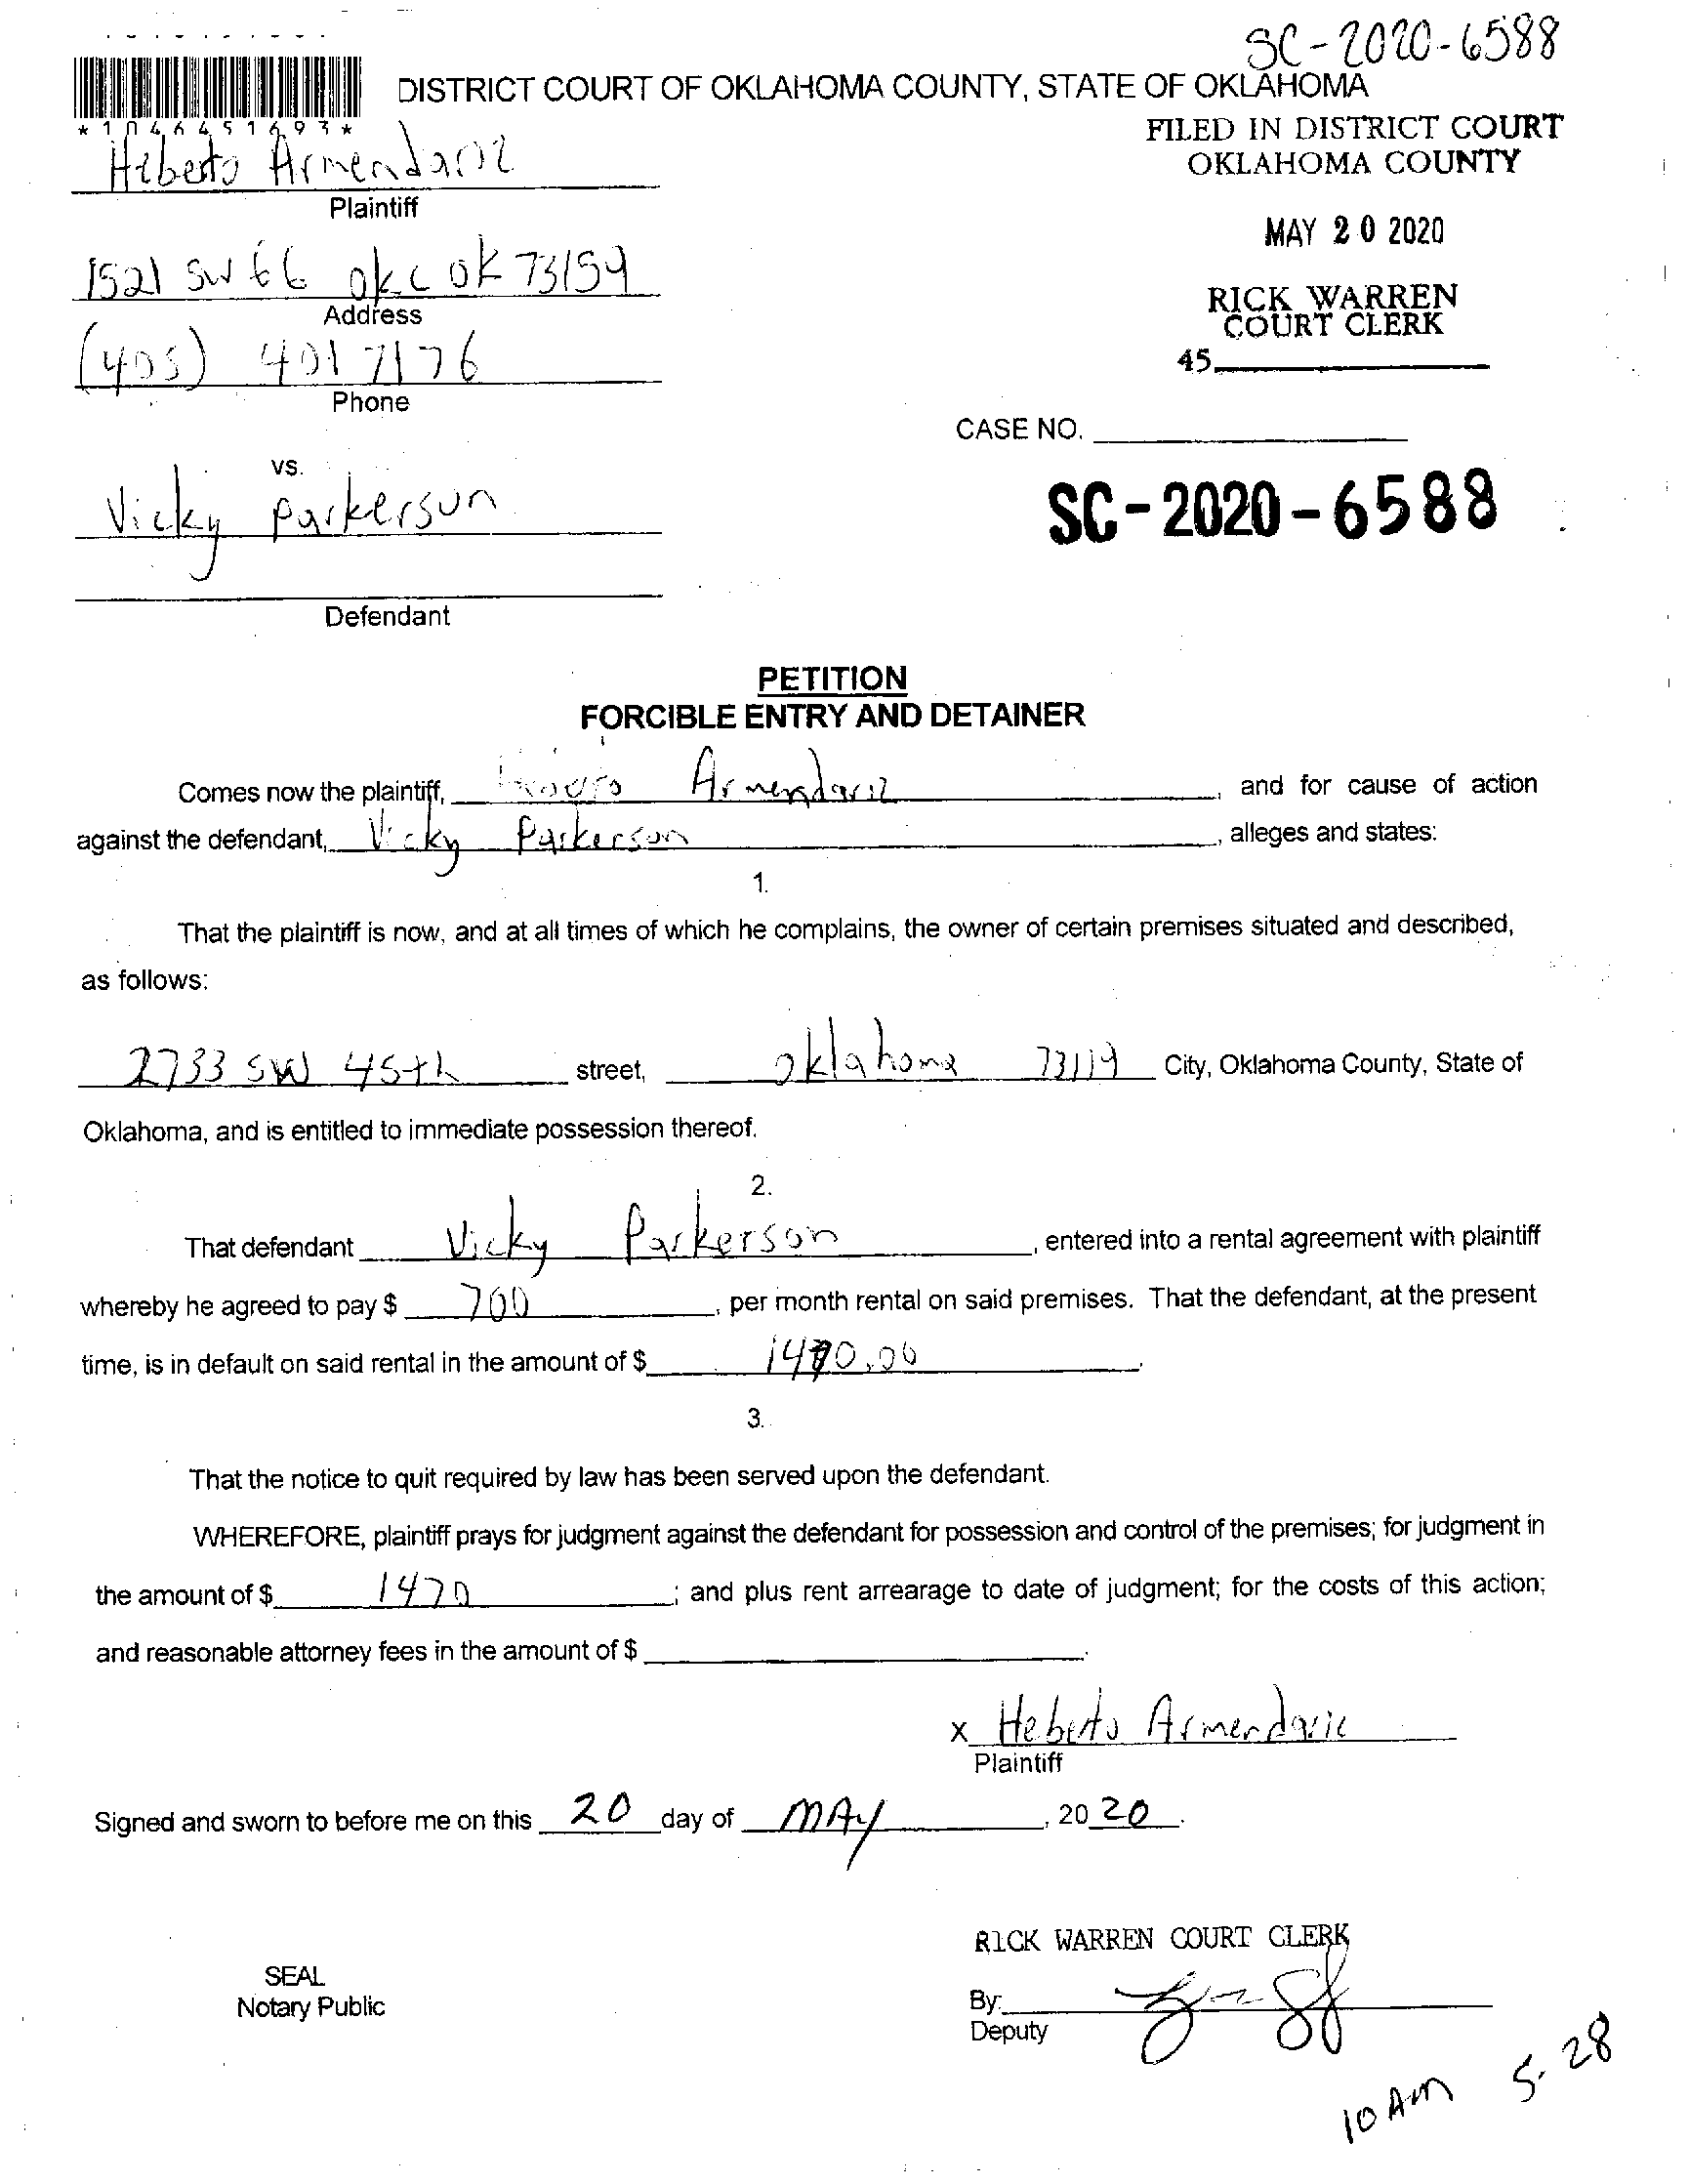 SC-2020-6588
DISTRICT COURT OF OKLAHOMA COUNTY, STATE OF OKLAHOMA
*1046451693*
FILED IN DISTRICT COURT
OKLAHOMA COUNTY
Heberto Armendariz
Plaintiff
MAY 20 2020
1521 SW 66 okc ok 73159
Address
RICK WARREN
COURT CLERK
(405) 401 7176
45
Phone
CASE NO.
vs.
Vicky parkerson
SC-2020-6588
Defendant
PETITION
FORCIBLE ENTRY AND DETAINER
Comes now the plaintiff, Armendariz, and for cause of action
against the defendant, Vicky Parkerson, alleges and states:
1.
That the plaintiff is now, and at all times of which he complains, the owner of certain premises situated and described,
as follows:
2733 SW 45th street, oklahoma 73119 City, Oklahoma County, State of
Oklahoma, and is entitled to immediate possession thereof.
2.
That defendant Vicky Parkerson, entered into a rental agreement with plaintiff
whereby he agreed to pay $ 700, per month rental on said premises. That the defendant, at the present
time, is in default on said rental in the amount of $ 1470.00.
3.
That the notice to quit required by law has been served upon the defendant.
WHEREFORE, plaintiff prays for judgment against the defendant for possession and control of the premises; for judgment in
the amount of $ 1470; and plus rent arrearage to date of judgment; for the costs of this action;
and reasonable attorney fees in the amount of $ .
x Heberto Armendariz
Plaintiff
Signed and sworn to before me on this 20 day of MAY, 2020.
RICK WARREN COURT CLERK
SEAL
Notary Public
By:
Deputy
10 AM 5-28